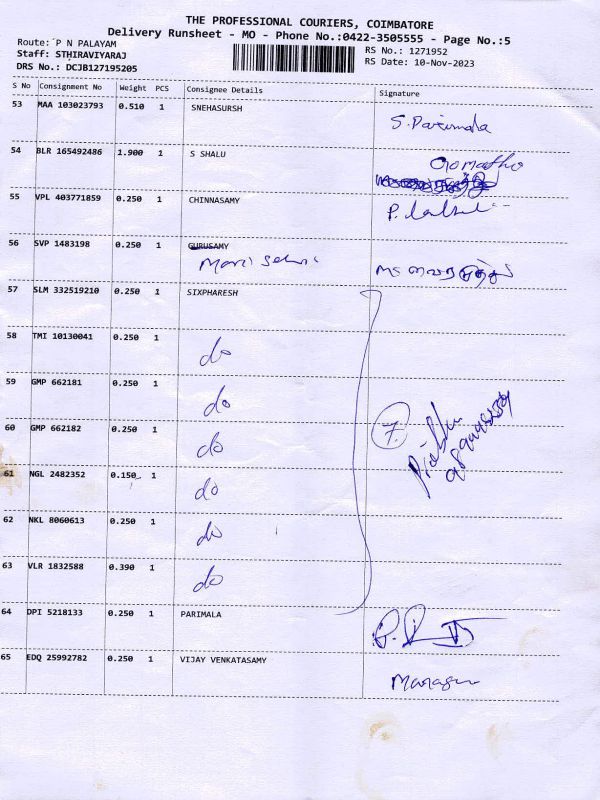 THE PROFESSIONAL COURIERS, COIMBATORE
Delivery Runsheet - MO - Phone No.:0422-3505555 - Page No.:5
Route: P N PALAYAM
RS No.: 1271952
Staff: STHIRAVIYARAJ
RS Date: 10-Nov-2023
DRS No.: DCJB127195205
S No Consignment No Weight PCS Consignee Details Signature
53 MAA 103023793 0.510 1 SNEHASURSH
S. Parimala
54 BLR 165492486 1.900 1 S SHALU
Gomathy
55 VPL 403771859 0.250 1 CHINNASAMY
P.
56 SVP 1483198 0.250 1 GURUSAMY
Mari Selvi
57 SLM 332519210 0.250 1 SIXPHARESH
58 TMI 10130041 0.250 1 do
59 GMP 662181 0.250 1 do
60 GMP 662182 0.250 1 do
7.
61 NGL 2482352 0.150 1 do
62 NKL 8060613 0.250 1 do
63 VLR 1832588 0.390 1 do
64 DPI 5218133 0.250 1 PARIMALA
65 EDQ 25992782 0.250 1 VIJAY VENKATASAMY